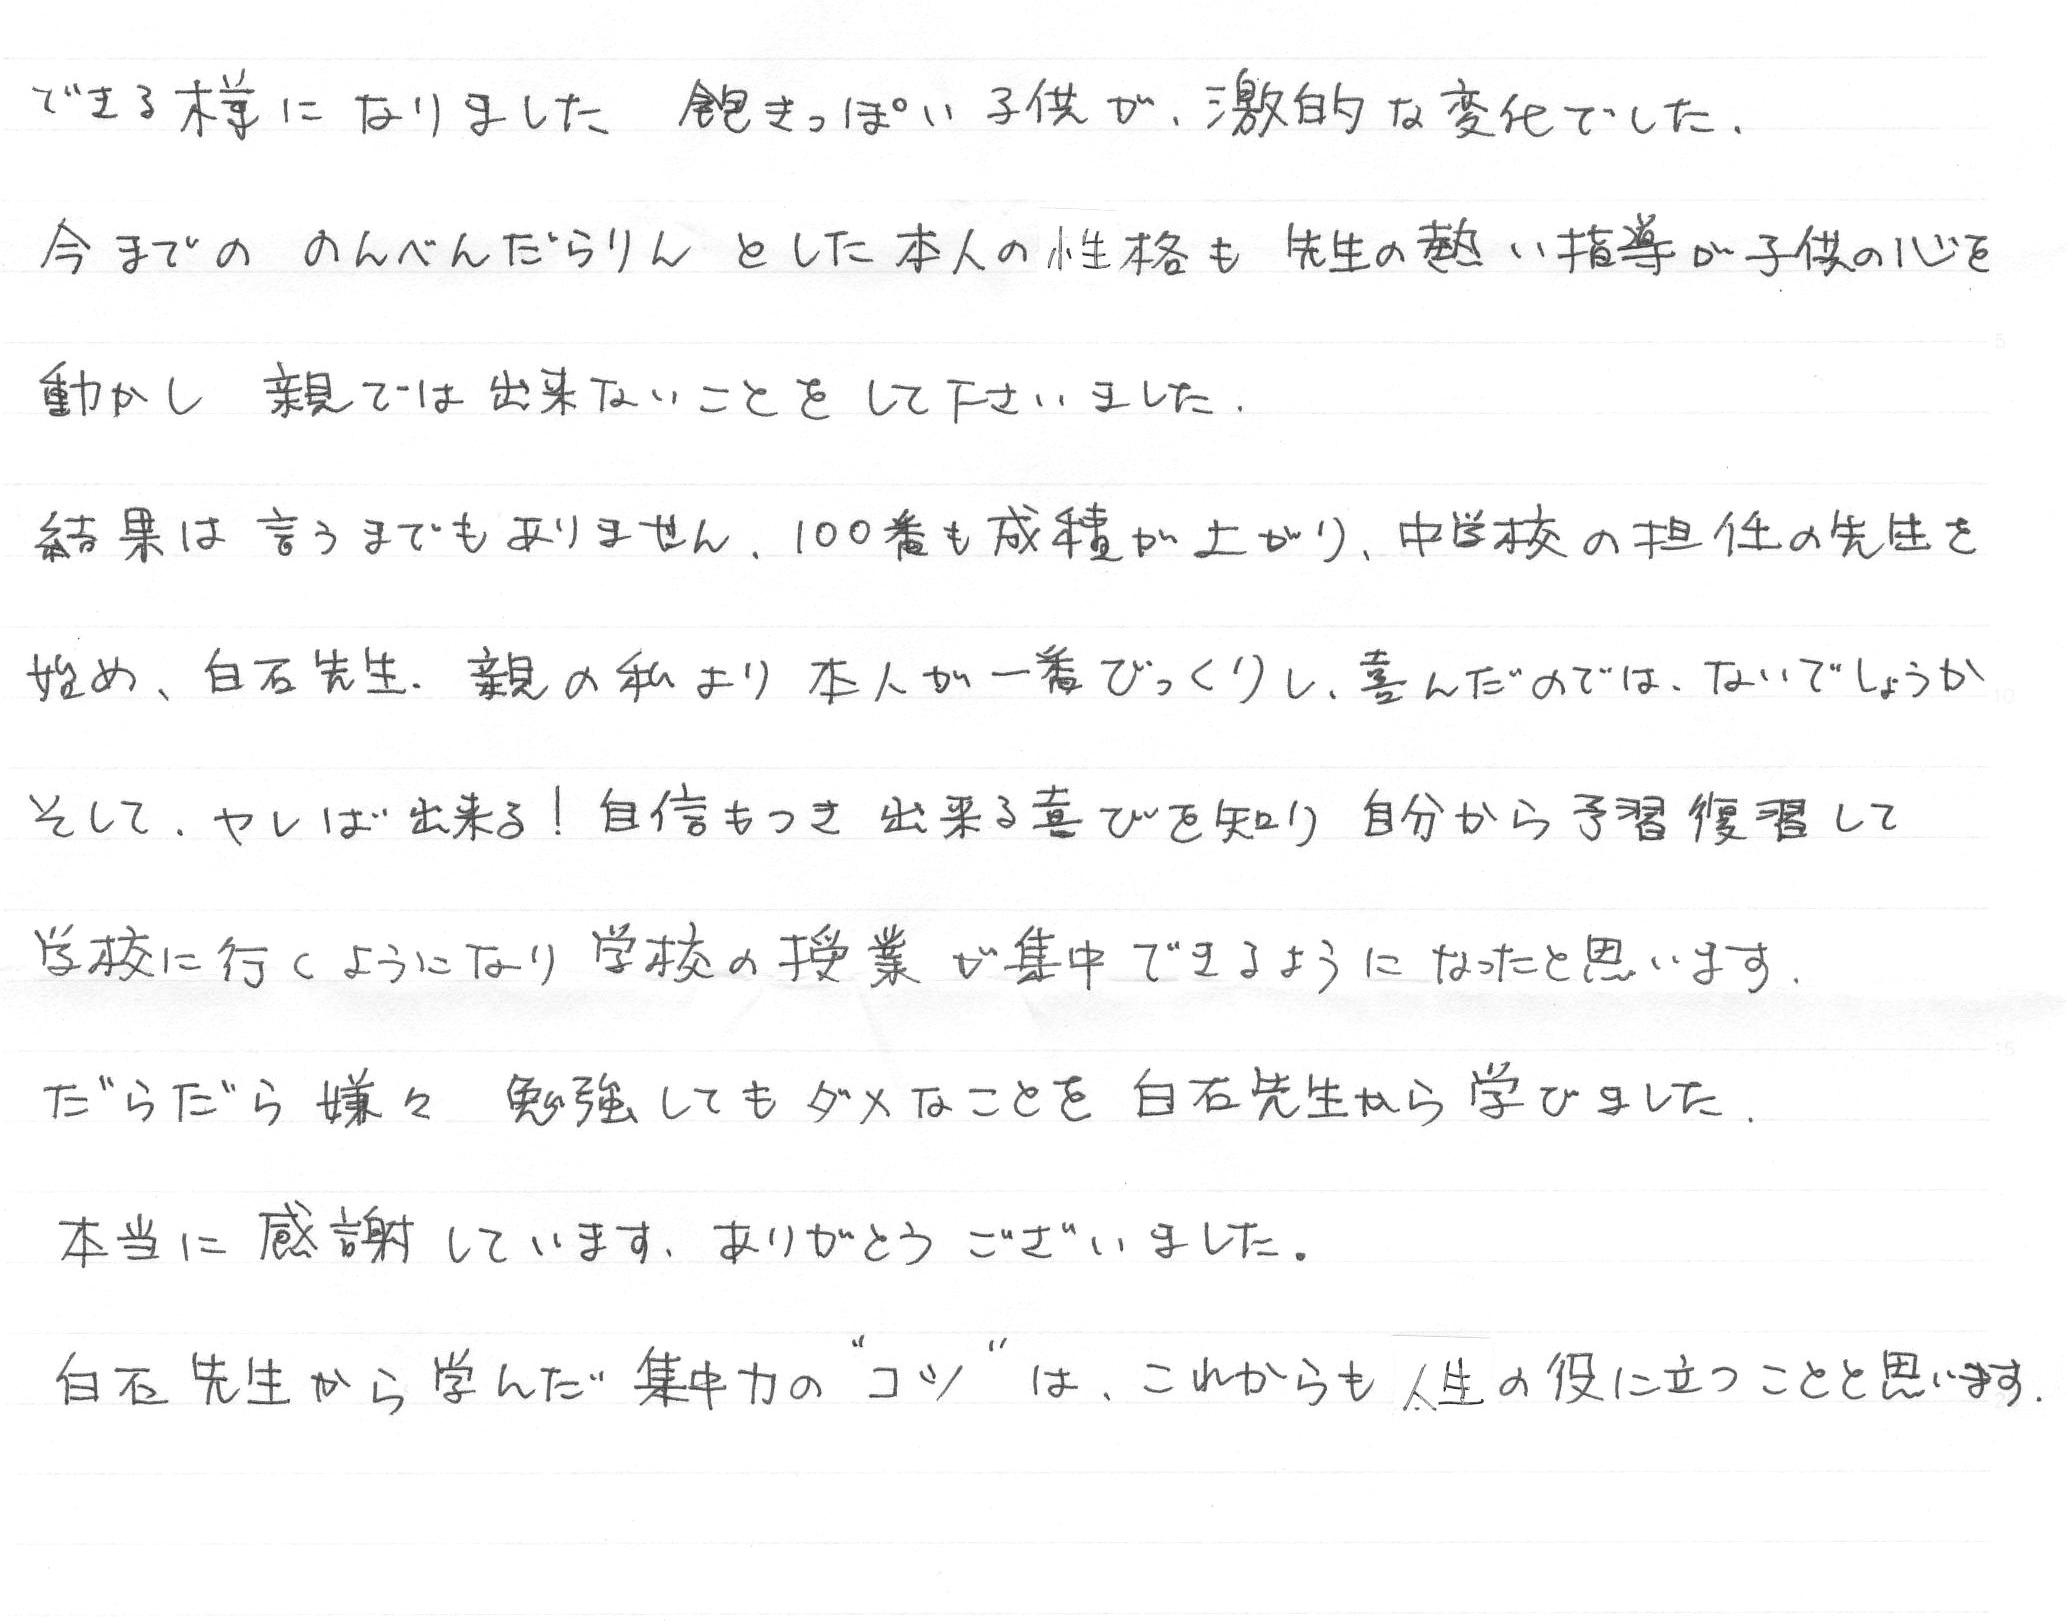 できる様になりました 飽きっぽい子供が、激的な変化でした。
今までの のんべんだらりんとした本人の性格も 先生の熱い指導が子供の心を
動かし 親では出来ないことをして下さいました。
結果は言うまでもありません、100番も成積が上がり、中学校の担任の先生を
始め、白石先生、親の私より本人が一番びっくりし、喜んだのでは、ないでしょうか
そして、ヤレば出来る!自信もつき 出来る喜びを知り 自分から予習復習して
学校に行くようになり 学校の授業が集中できるようになったと思います。
だらだら嫌々 勉強してもダメなことを 白石先生から学びました。
本当に感謝しています、ありがとうございました。
白石先生から学んだ集中力の“コツ”は、これからも人生の役に立つことと思います。
5
10
15